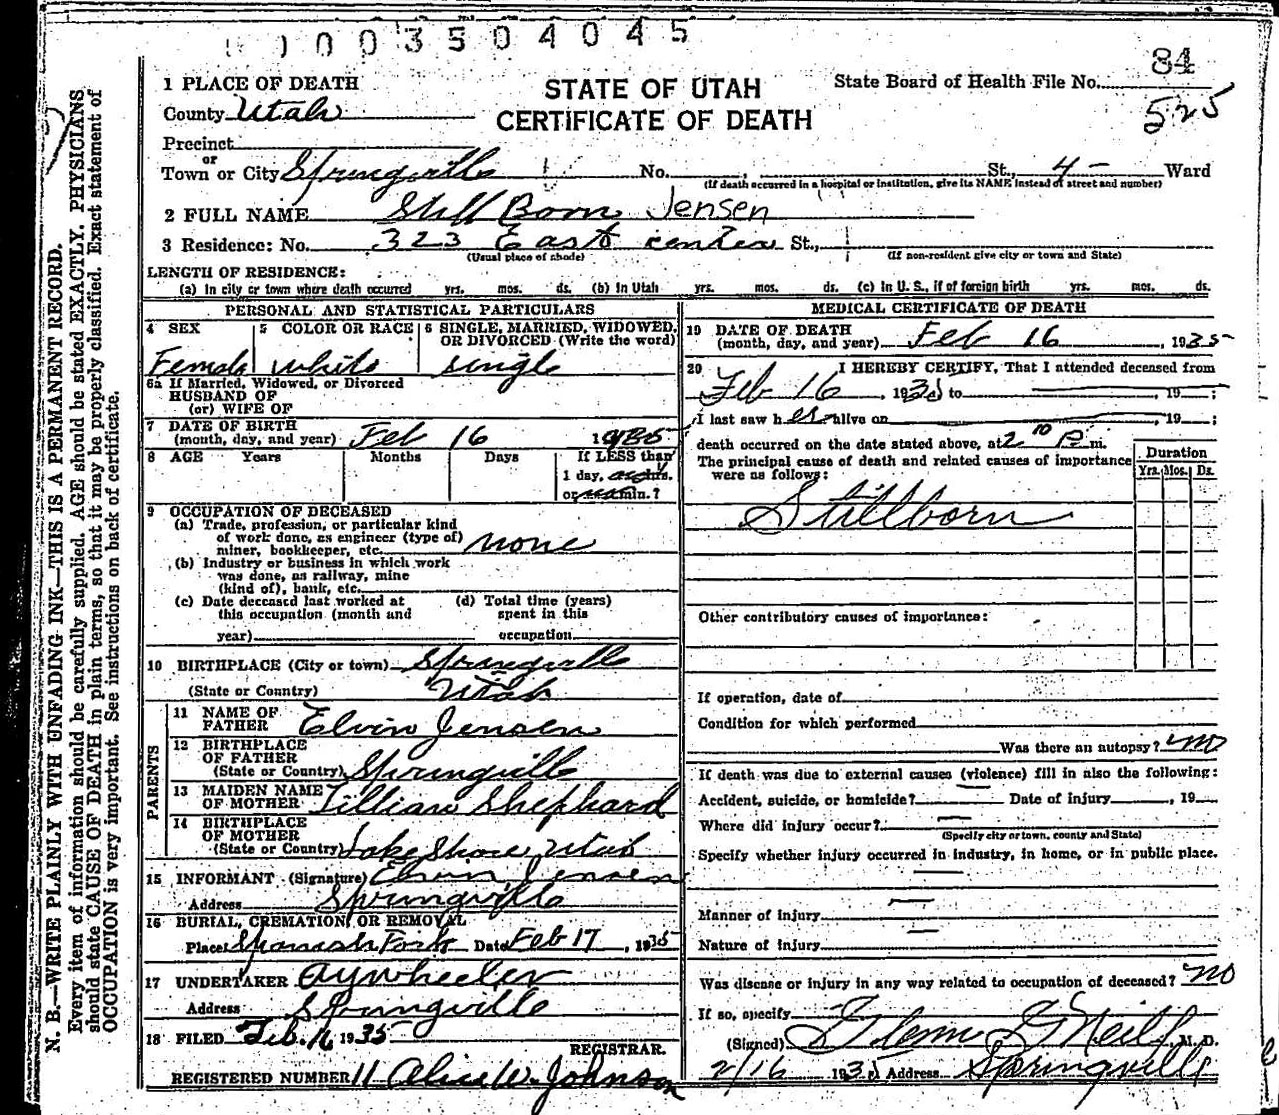 1003504045
84
525
STATE OF UTAH
CERTIFICATE OF DEATH
State Board of Health File No.
1 PLACE OF DEATH
County Utah
Precinct
or
Town or City Springville No. , St., 4- Ward
(If death occurred in a hospital or institution, give its NAME instead of street and number)
2 FULL NAME Still Born Jensen
3 Residence: No. 323 East center St.,
(Usual place of abode) (If non-resident give city or town and State)
LENGTH OF RESIDENCE:
(a) In city or town where death occurred yrs. mos. ds. (b) In Utah yrs. mos. ds. (c) In U. S., if of foreign birth yrs. mos. ds.
PERSONAL AND STATISTICAL PARTICULARS
4 SEX 5 COLOR OR RACE 6 SINGLE, MARRIED, WIDOWED, OR DIVORCED (Write the word)
Female white single
6a If Married, Widowed, or Divorced
HUSBAND OF
(or) WIFE OF
7 DATE OF BIRTH
(month, day, and year) Feb 16 1935
8 AGE Years Months Days If LESS than
1 day, hrs.
or min.?
9 OCCUPATION OF DECEASED
(a) Trade, profession, or particular kind
of work done, as engineer (type of)
miner, bookkeeper, etc. none
(b) Industry or business in which work
was done, as railway, mine
(kind of), bank, etc.
(c) Date deceased last worked at (d) Total time (years)
this occupation (month and spent in this
year) occupation
10 BIRTHPLACE (City or town) Springville
(State or Country) Utah
PARENTS
11 NAME OF
FATHER Elvin Jensen
12 BIRTHPLACE
OF FATHER
(State or Country) Springville
13 MAIDEN NAME
OF MOTHER Lillian Shephard
14 BIRTHPLACE
OF MOTHER
(State or Country) Lake Shore, Utah
15 INFORMANT (Signature) Elvin Jensen
Address Springville
16 BURIAL, CREMATION, OR REMOVAL
Place Spanish Fork Date Feb 17, 1935
17 UNDERTAKER A Y Wheeler
Address Springville
18 FILED Feb. 16 1935
REGISTRAR.
REGISTERED NUMBER 11 Alice W. Johnson
MEDICAL CERTIFICATE OF DEATH
19 DATE OF DEATH
(month, day, and year) Feb 16, 1935
20 I HEREBY CERTIFY, That I attended deceased from
Feb 16, 1935 to , 19 ;
I last saw her alive on , 19 ;
death occurred on the date stated above, at 2 10 P m.
The principal cause of death and related causes of importance
were as follows:
Duration
Yrs. Mos. Ds.
Stillborn
Other contributory causes of importance:
If operation, date of
Condition for which performed
Was there an autopsy? no
If death was due to external causes (violence) fill in also the following:
Accident, suicide, or homicide? Date of injury , 19
Where did injury occur?
(Specify city or town, county and State)
Specify whether injury occurred in industry, in home, or in public place.
Manner of injury
Nature of injury
Was disease or injury in any way related to occupation of deceased? no
If so, specify
(Signed) Glenn G Neill, M. D.
2/16 1935 Address Springville
N. B.—WRITE PLAINLY WITH UNFADING INK—THIS IS A PERMANENT RECORD.
Every item of information should be carefully supplied. AGE should be stated EXACTLY. PHYSICIANS
should state CAUSE OF DEATH in plain terms, so that it may be properly classified. Exact statement of
OCCUPATION is very important. See instructions on back of certificate.